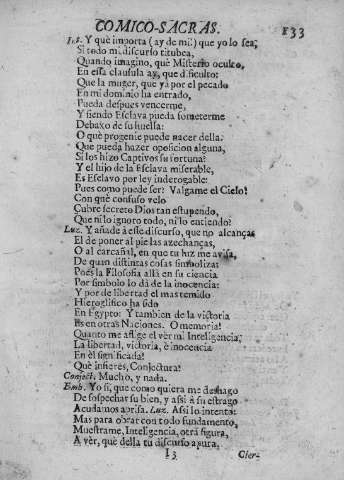 COMICO-SACRAS. 133
Y què importa (ay de mi!) que yo lo sea,
Si todo mi discurso titubea,
Quando imagino, què Misterio oculto,
En essa clausula ay, que dificulto:
Que la muger, que ya por el pecado
En mi dominio ha entrado,
Pueda despues vencerme,
Y siendo Esclava pueda someterme
Debaxo de su huella:
O què progenie puede nacer della,
Que pueda hazer oposicion alguna,
Si los hizo Captivos su fortuna?
Y el hijo de la Esclava miserable,
Es Esclavo por ley inderogable:
Pues como puede ser? Valgame el Cielo!
Con què confuso velo
Cubre secreto Dios tan estupendo,
Que ni lo ignoro todo, ni lo entiendo?
Luz. Y añade à esse discurso, que no alcanças
El de poner al pie las azechanças,
O al carcañal, en que tu luz me avisa,
De quan distintas cosas simboliza:
Pues la Filosofia allà en su ciencia
Por simbolo lo dà de la inocencia:
Y por de libertad el mas temido
Hieroglifico ha sido
En Egypto: Y tambien de la victoria
Es en otras Naciones. O memoria!
Quanto me aflige el vèr mi Inteligencia,
La libertad, victoria, è inocencia
En èl significada!
Què infieres, Conjectura?
Conject. Mucho, y nada.
Emb. Yo si, que como quiera me deshago
De sospechar su bien, y assi à su estrago
Acudamos aprisa. Luz. Assi lo intento:
Mas para obrar con todo fundamento,
Muestrame, Inteligencia, otra figura,
A vèr, què della tu discurso apura,
I 3 Cier-